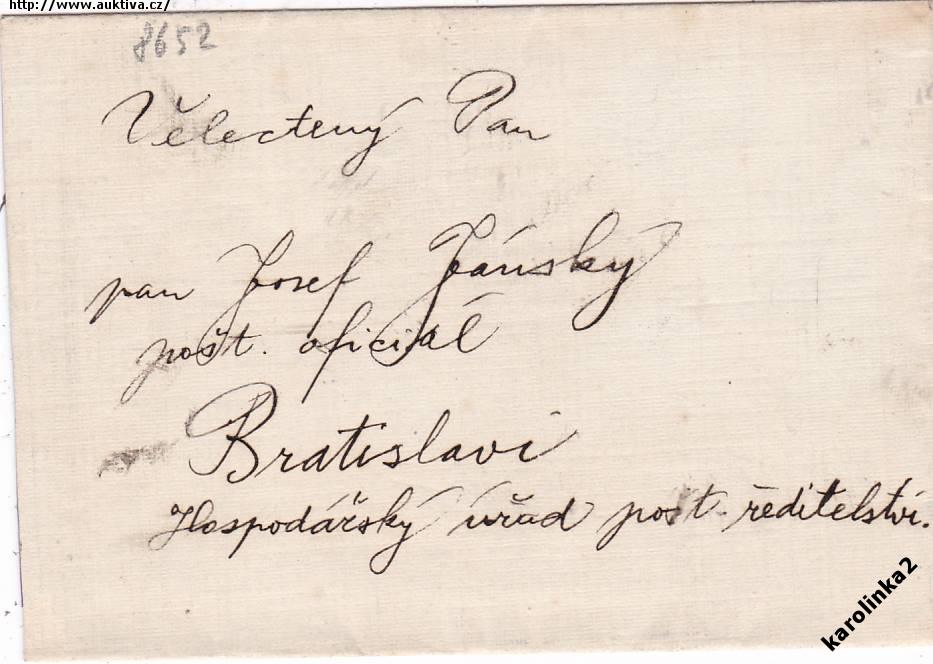 http://www.auktiva.cz/
8652
Vělectený Pan
pan Josef Jánský
pošt. oficiál
Bratislavi
Hospodářský úřad post. ředitelství.
karolinka2